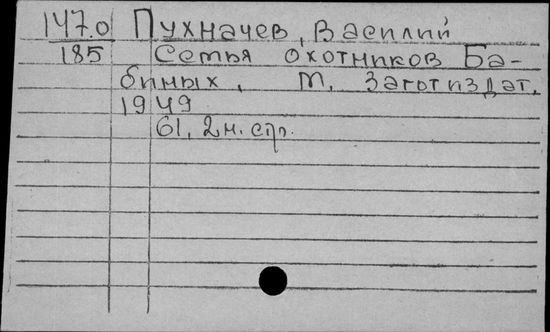 147.0 Пухначев, Василий
185 Семья охотников Ба-
биных, М. Заготиздат.
1949
61, 2 н. стр.